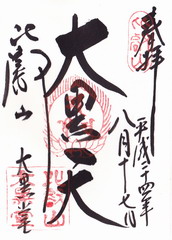 奉拝
平成二十四年
八月十七日
大黒天
比叡山
大黒堂